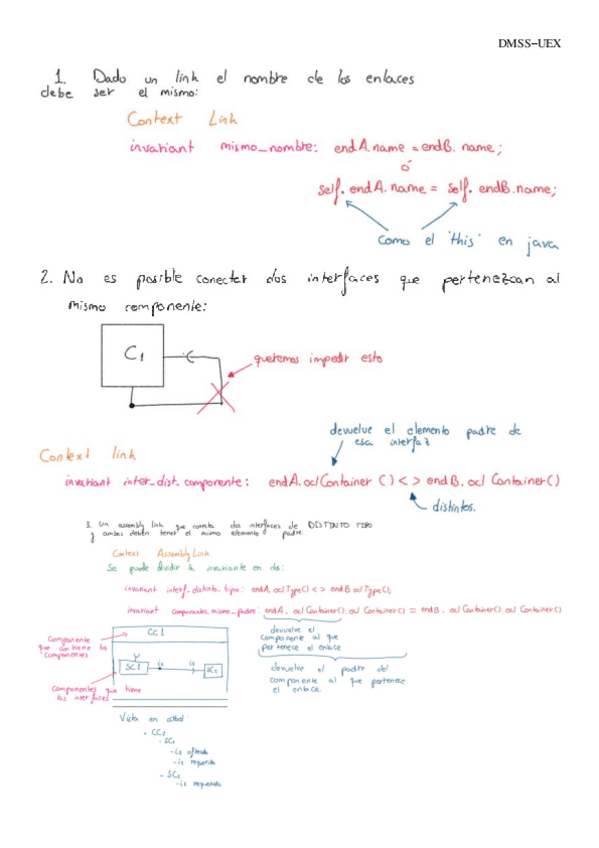 DMSS-UEX
1. Dado un link el nombre de los enlaces
debe ser el mismo:
Context Link
invariant mismo_nombre: endA.name = endB.name;
ó
self.endA.name = self.endB.name;
como el 'this' en java
2. No es posible conectar dos interfaces que pertenezcan al
mismo componente:
C1
queremos impedir esto
devuelve el elemento padre de
esa interfaz
Context link
invariant inter_dist_componente: endA.oclContainer() <> endB.oclContainer()
distintos.
3. Un assembly link que conecta dos interfaces de DISTINTO TIPO
y ambas deben tener el mismo elemento padre.
Context AssemblyLink
Se puede dividir la invariante en dos:
invariant interf_distinto_tipo: endA.oclType() <> endB.oclType();
invariant componentes_mismo_padre: endA.oclContainer().oclContainer() = endB.oclContainer().oclContainer()
Componente
que contiene los
componentes
CC1
SC1
Componentes que tiene
las interfaces
devuelve el
componente al que
pertenece el enlace
devuelve el padre del
componente al que pertenece
el enlace.
Vista en árbol:
- CC1
- SC1
- is ofrecida
- is requerida
- SC2
- is requerida